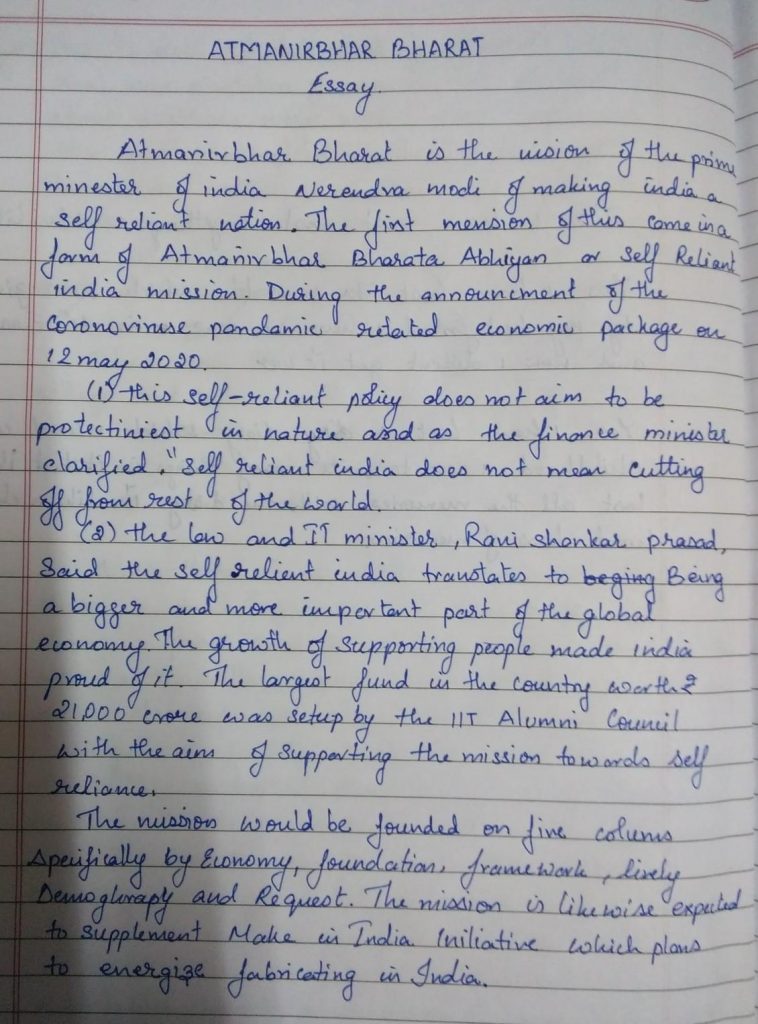 ATMANIRBHAR BHARAT
Essay
Atmanirbhar Bharat is the vision of the prime
minester of india Nerendra modi of making india a
self reliant nation. The first mension of this came in a
form of Atmanirbhar Bharata Abhiyan or self Reliant
india mission. During the announcment of the
coronoviruse pandamic related economic package on
12 may 2020.
(1) this self-reliant policy does not aim to be
protectiniest in nature and as the finance minister
clarified, "self reliant india does not mean cutting
off from rest of the world.
(2) the law and IT minister, Ravi shankar prasad,
Said the self relient india translates to beging Being
a bigger and more important part of the global
economy. The growth of supporting people made india
proud of it. The largest fund in the country worth ₹
21,000 crore was setup by the IIT Alumni Council
with the aim of supporting the mission towards self
reliance.
The mission would be founded on five colums
Specifically by Economy, foundation, framework, lively
Demoghrapy and Request. The mission is likewise expected
to supplement Make in India Iniliative which plans
to energize fabricating in India.